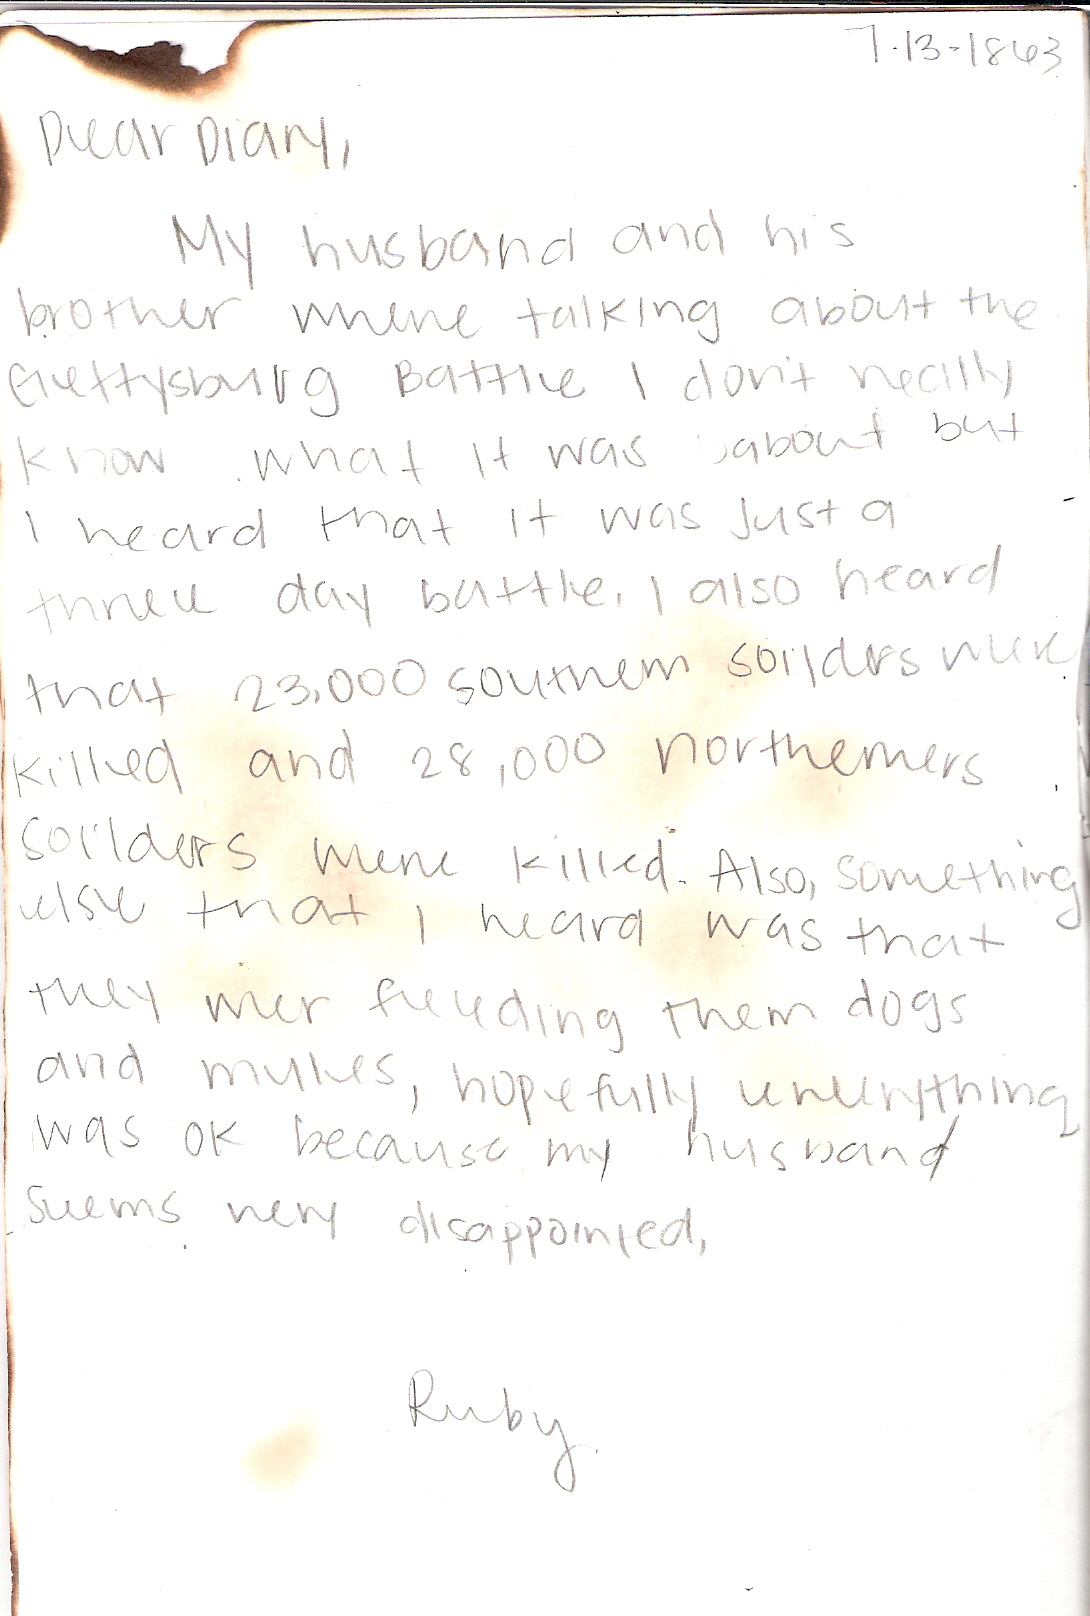 7-13-1863
Dear Diary,
My husband and his
brother where talking about the
Gettysburg Battle I don't really
know what it was about but
I heard that it was just a
three day battle. I also heard
that 23,000 southern soilders were
killed and 28,000 northerners
soilders were killed. Also, something
else that I heard was that
they wer feeding them dogs
and mules, hopefully everything
was ok because my husband
seems very disappointed.
Ruby